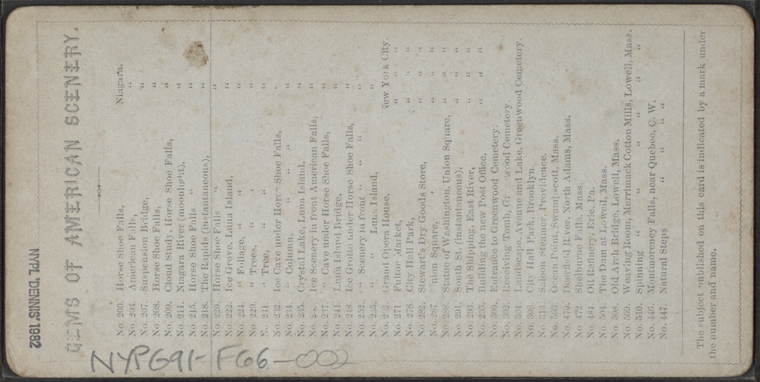 GEMS OF AMERICAN SCENERY.
No. 200. Horse Shoe Falls, Niagara.
No. 203. American Falls, "
No. 207. Suspension Bridge, "
No. 208. Horse Shoe Falls, "
No. 209. Cloud Study, Horse Shoe Falls, "
No. 211. Niagara River (moonlight), "
No. 215. Horse Shoe Falls "
No. 218. The Rapids (instantaneous), "
No. 220. Horse Shoe Falls "
No. 222. Ice Grove, Luna Island, "
No. 224. " Foliage, " "
No. " Trees, " "
No. 231. " Tree, " "
No. 232. Ice Cave under Horse Shoe Falls, "
No. 234. " Column, " "
No. 235. Crystal Lake, Luna Island, "
No. Ice Scenery in front American Falls, "
No. 237. " Cave under Horse Shoe Falls, "
No. 241. Luna Island Bridge, "
No. 248. Ice Grotto under Horse Shoe Falls, "
No. 252. " Scenery in front " "
No. 255. " " Luna Island, "
No. 252. Grand Opera House, New York City.
No. 271 Fulton Market, "
No. 278. City Hall Park, "
No. 282. Stewart's Dry Goods Store, "
No. 287. Union Square, "
No. Statue of Washington, Union Square, "
No. 291. South St. (instantaneous), "
No. The Shipping, East River, "
No. 295. Building the new Post Office, "
No. 300. Entrance to Greenwood Cemetery.
No. 302. Receiving Tomb, Greenwood Cemetery.
No. Lake, Greenwood Cemetery.
No. City Hall Park, Brooklyn.
No. Saloon Steamer, Providence.
No. Ocean Point, Swampscott, Mass.
No. 470. Deerfield River, North Adams, Mass.
No. 472 Shelburne Falls, Mass.
No. 484 Oil Refinery, Erie, Pa.
No. Lowell, Mass.
No. 508. Old Arch Bridge, Lowell, Mass.
No. 509. Weaving Room, Merrimack Cotton Mills, Lowell, Mass.
No. 510. Spinning " " " "
No. 446. Montmorency Falls, near Quebec, C. W.
No. 447. Natural Steps " "
The subject published on this card is indicated by a mark under
the number and name.
NYPL 'DENNIS' 1982
NYPG91-F66-002